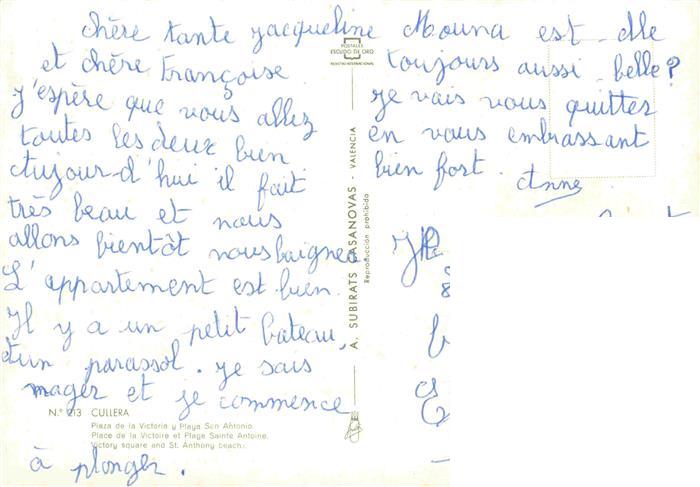 chère tante Jacqueline
et chère Françoise
J'espère que vous allez
toutes les deux bien
Aujour-d'hui il fait
très beau et nous
allons bientôt nous baigner
L'appartement est bien.
Il y a un petit bateau,
et un parasol. Je sais
nager et je commence
à plonger.
Mouna est-elle
toujours aussi belle?
Je vais vous quitter
en vous embrassant
bien fort. Anne
POSTALES
ESCUDO DE ORO
REGISTRO INTERNACIONAL
A. SUBIRATS CASANOVAS - VALENCIA
Reproducción prohibida
N.º 213 CULLERA
Plaza de la Victoria y Playa San Antonio.
Place de la Victoire et Plage Sainte Antoine.
Victory square and St. Anthony beach.